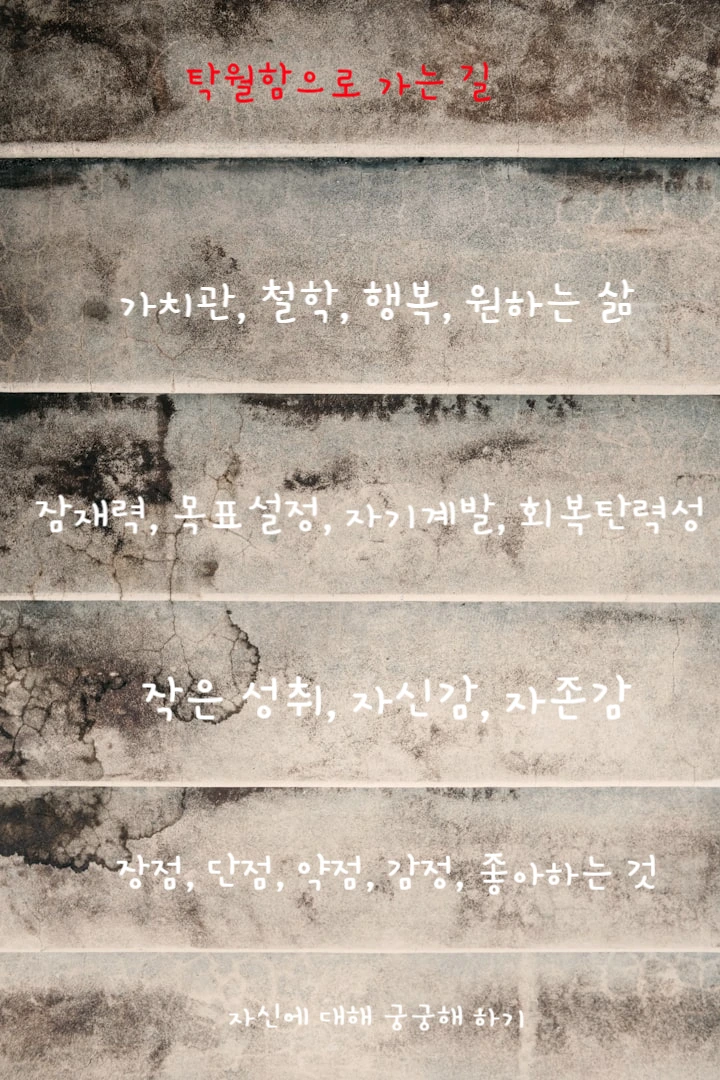 탁월함으로 가는 길
가치관, 철학, 행복, 원하는 삶
잠재력, 목표설정, 자기계발, 회복탄력성
작은 성취, 자신감, 자존감
장점, 단점, 약점, 감정, 좋아하는 것
자신에 대해 궁궁해 하기